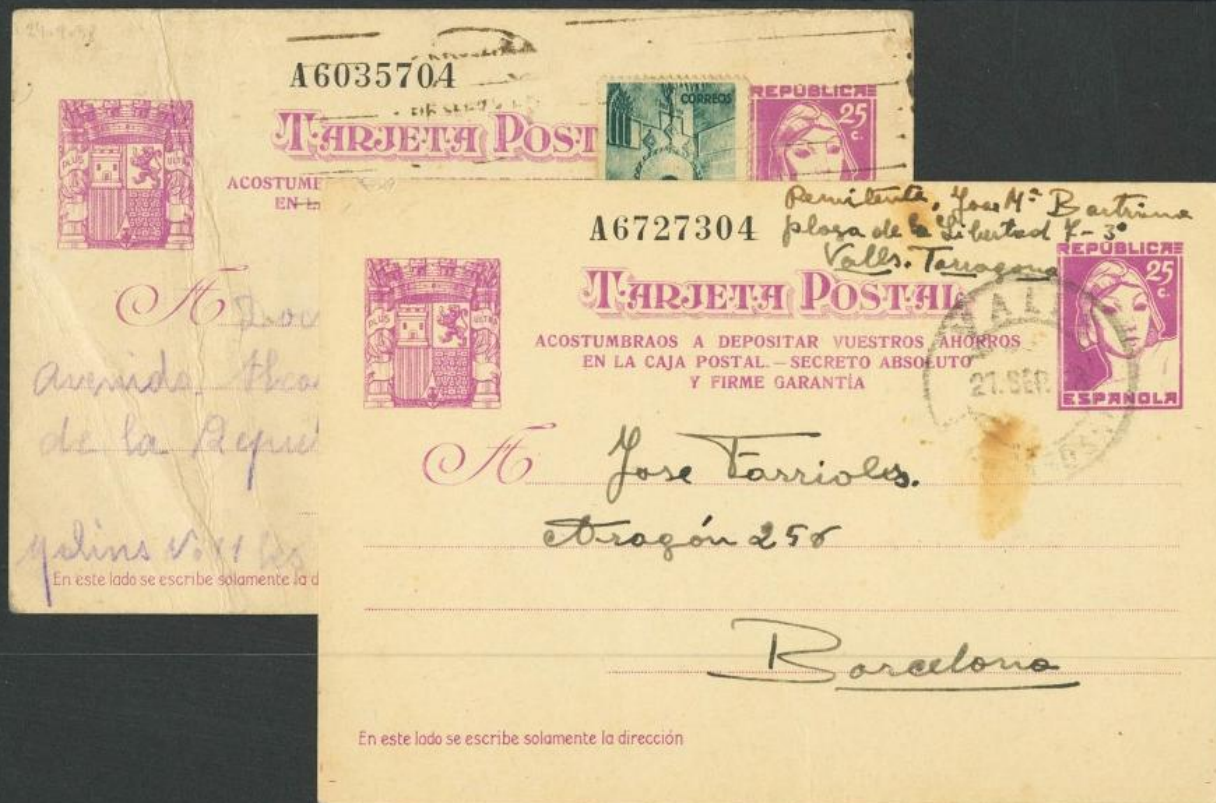 24-9-38
A6035704
TARJETA POST
CORREOS
REPUBLICA
25
c.
PLUS ULTRA
ACOSTUMB
EN L
A
Avenida
de la
En este lado se escribe solamente la d
Remitente, Jose Mª Bartrina
plaza de la Libertad 7-3º
Valls. Tarragona
A6727304
REPUBLICA
25
c.
ESPAÑOLA
TARJETA POSTAL
PLUS ULTRA
ACOSTUMBRAOS A DEPOSITAR VUESTROS AHORROS
EN LA CAJA POSTAL.–SECRETO ABSOLUTO
Y FIRME GARANTÍA
VALL
21.SEP.
A Jose Farrioles.
Aragón 256
Barcelona
En este lado se escribe solamente la dirección